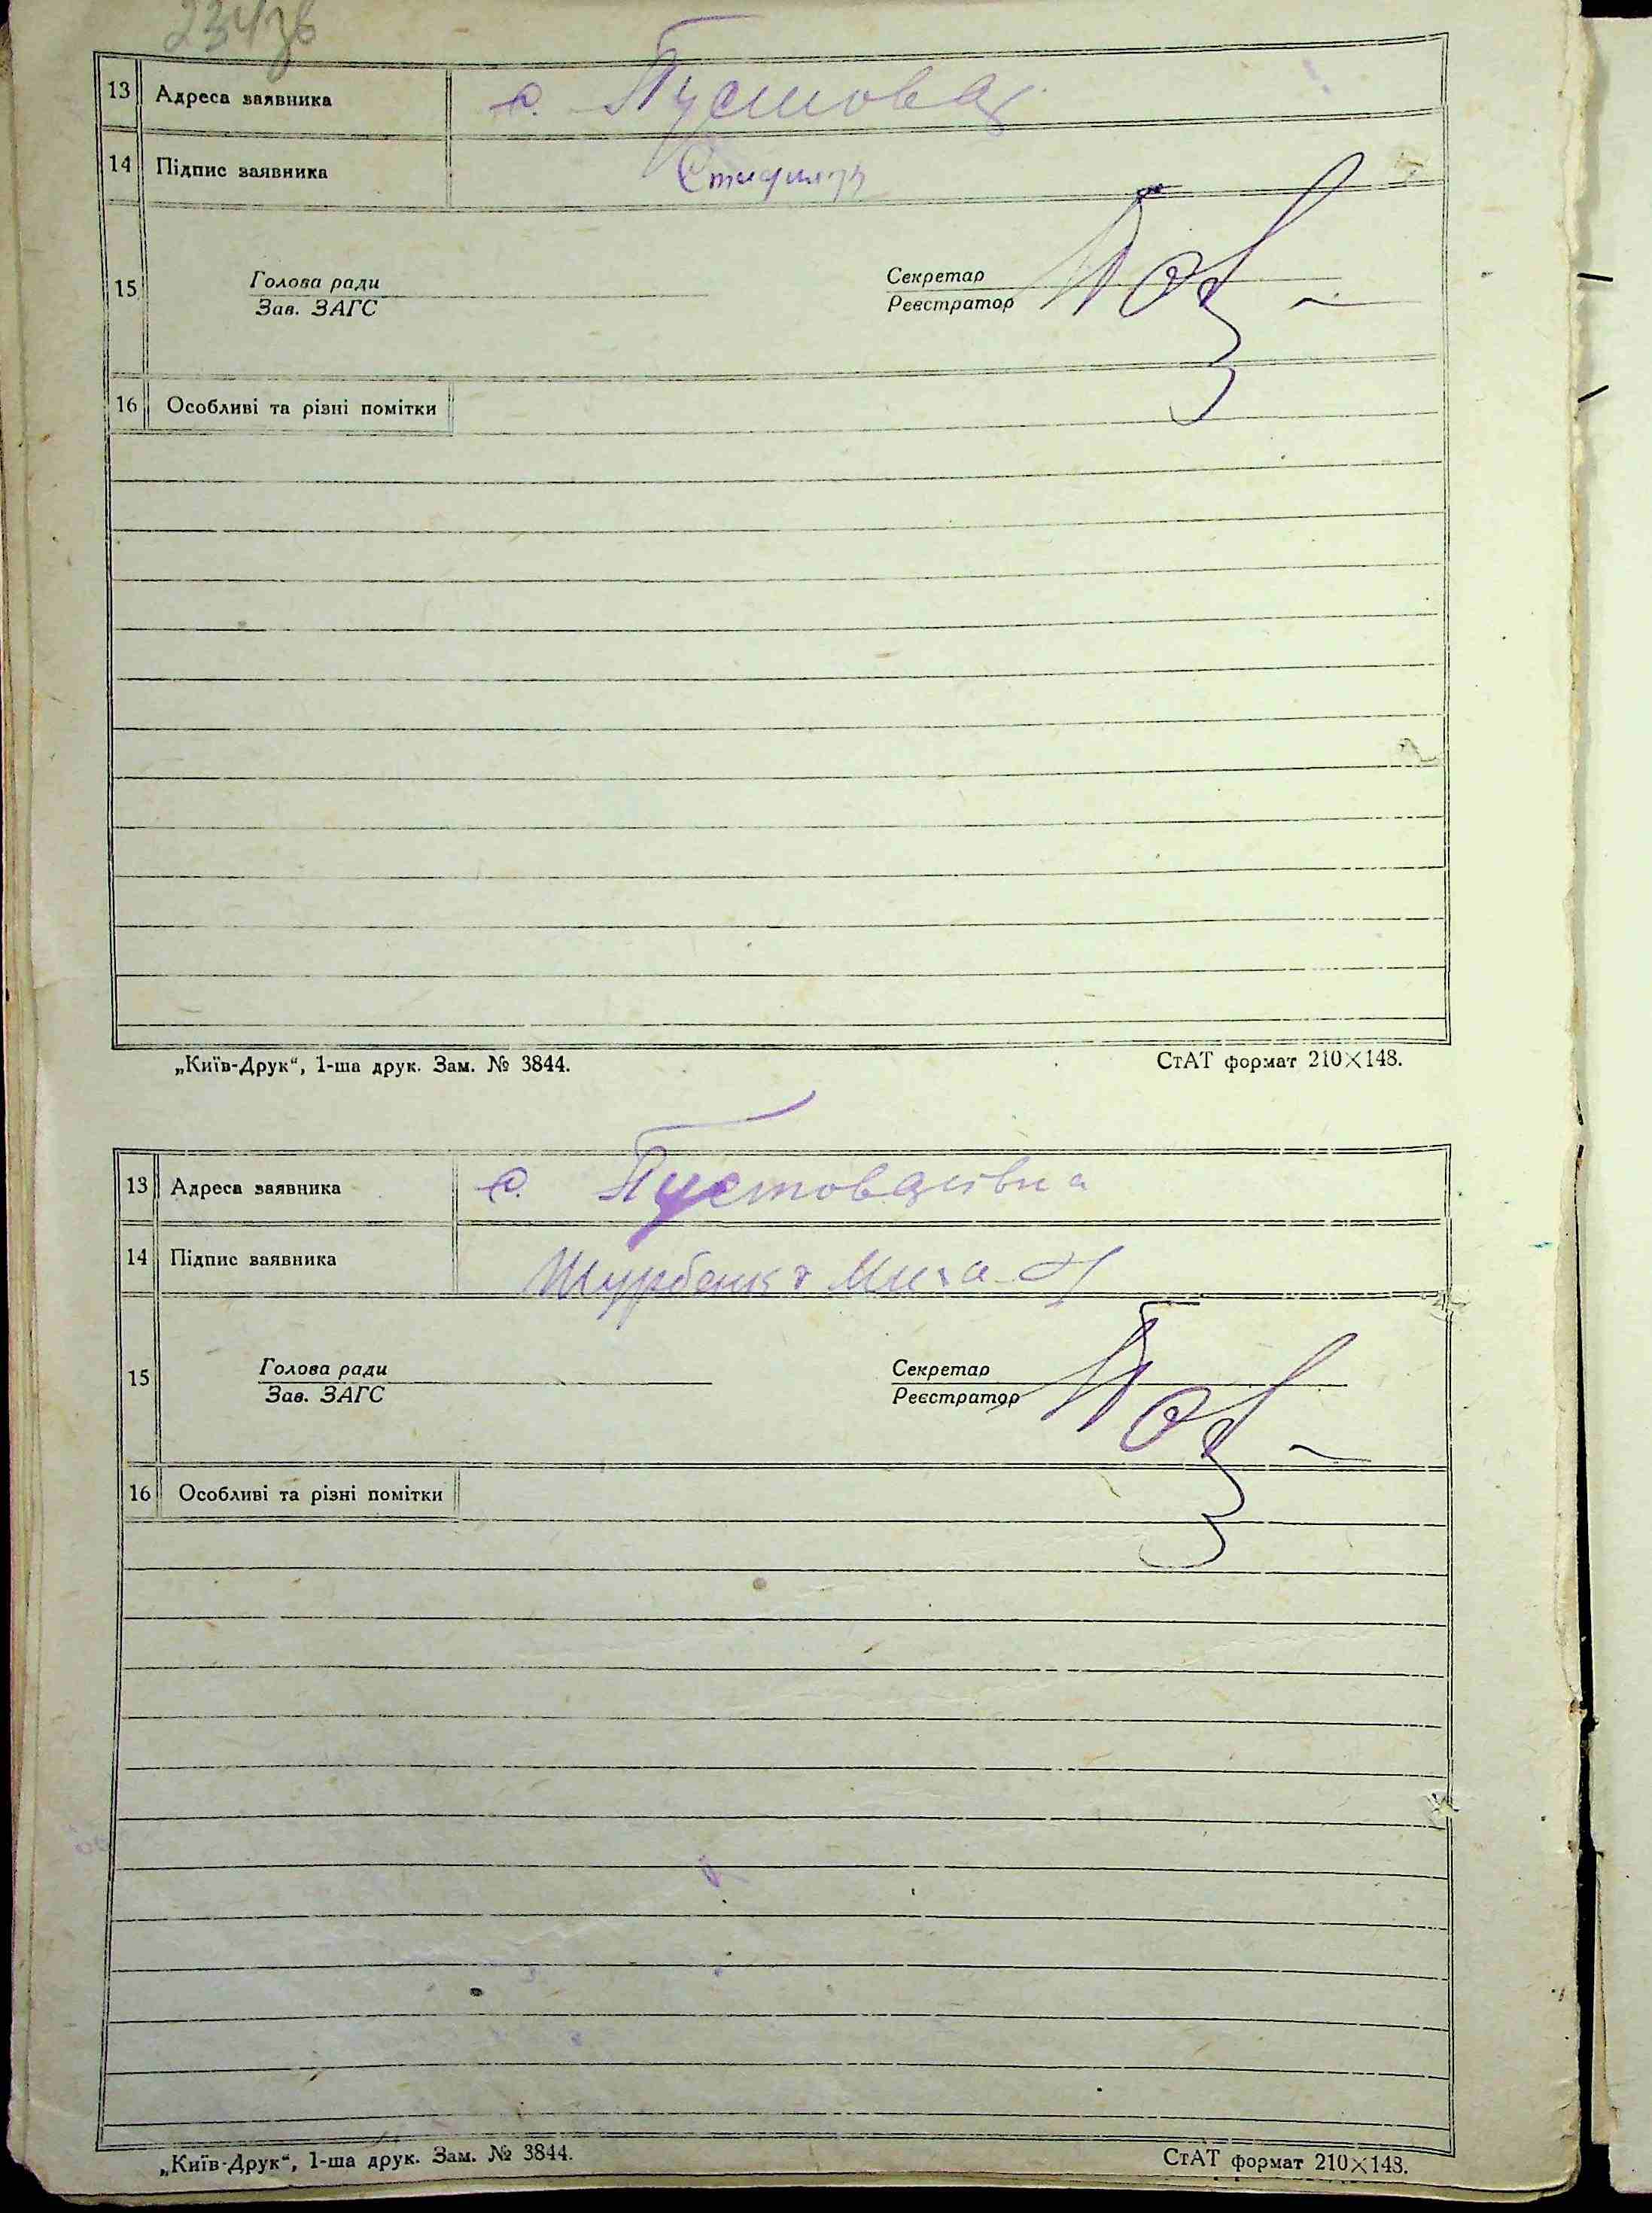 234зв
13 Адреса заявника с. Пустовар.
14 Підпис заявника
Голова ради Секретар
15
Зав. ЗАГС Реєстратор
16 Особливі та різні помітки
„Київ-Друк“, 1-ша друк. Зам. № 3844. СтАТ формат 210×148.
13 Адреса заявника с. Пустоварівка
14 Підпис заявника
Голова ради Секретар
15
Зав. ЗАГС Реєстратор
16 Особливі та різні помітки
„Київ-Друк“, 1-ша друк. Зам. № 3844. СтАТ формат 210×148.